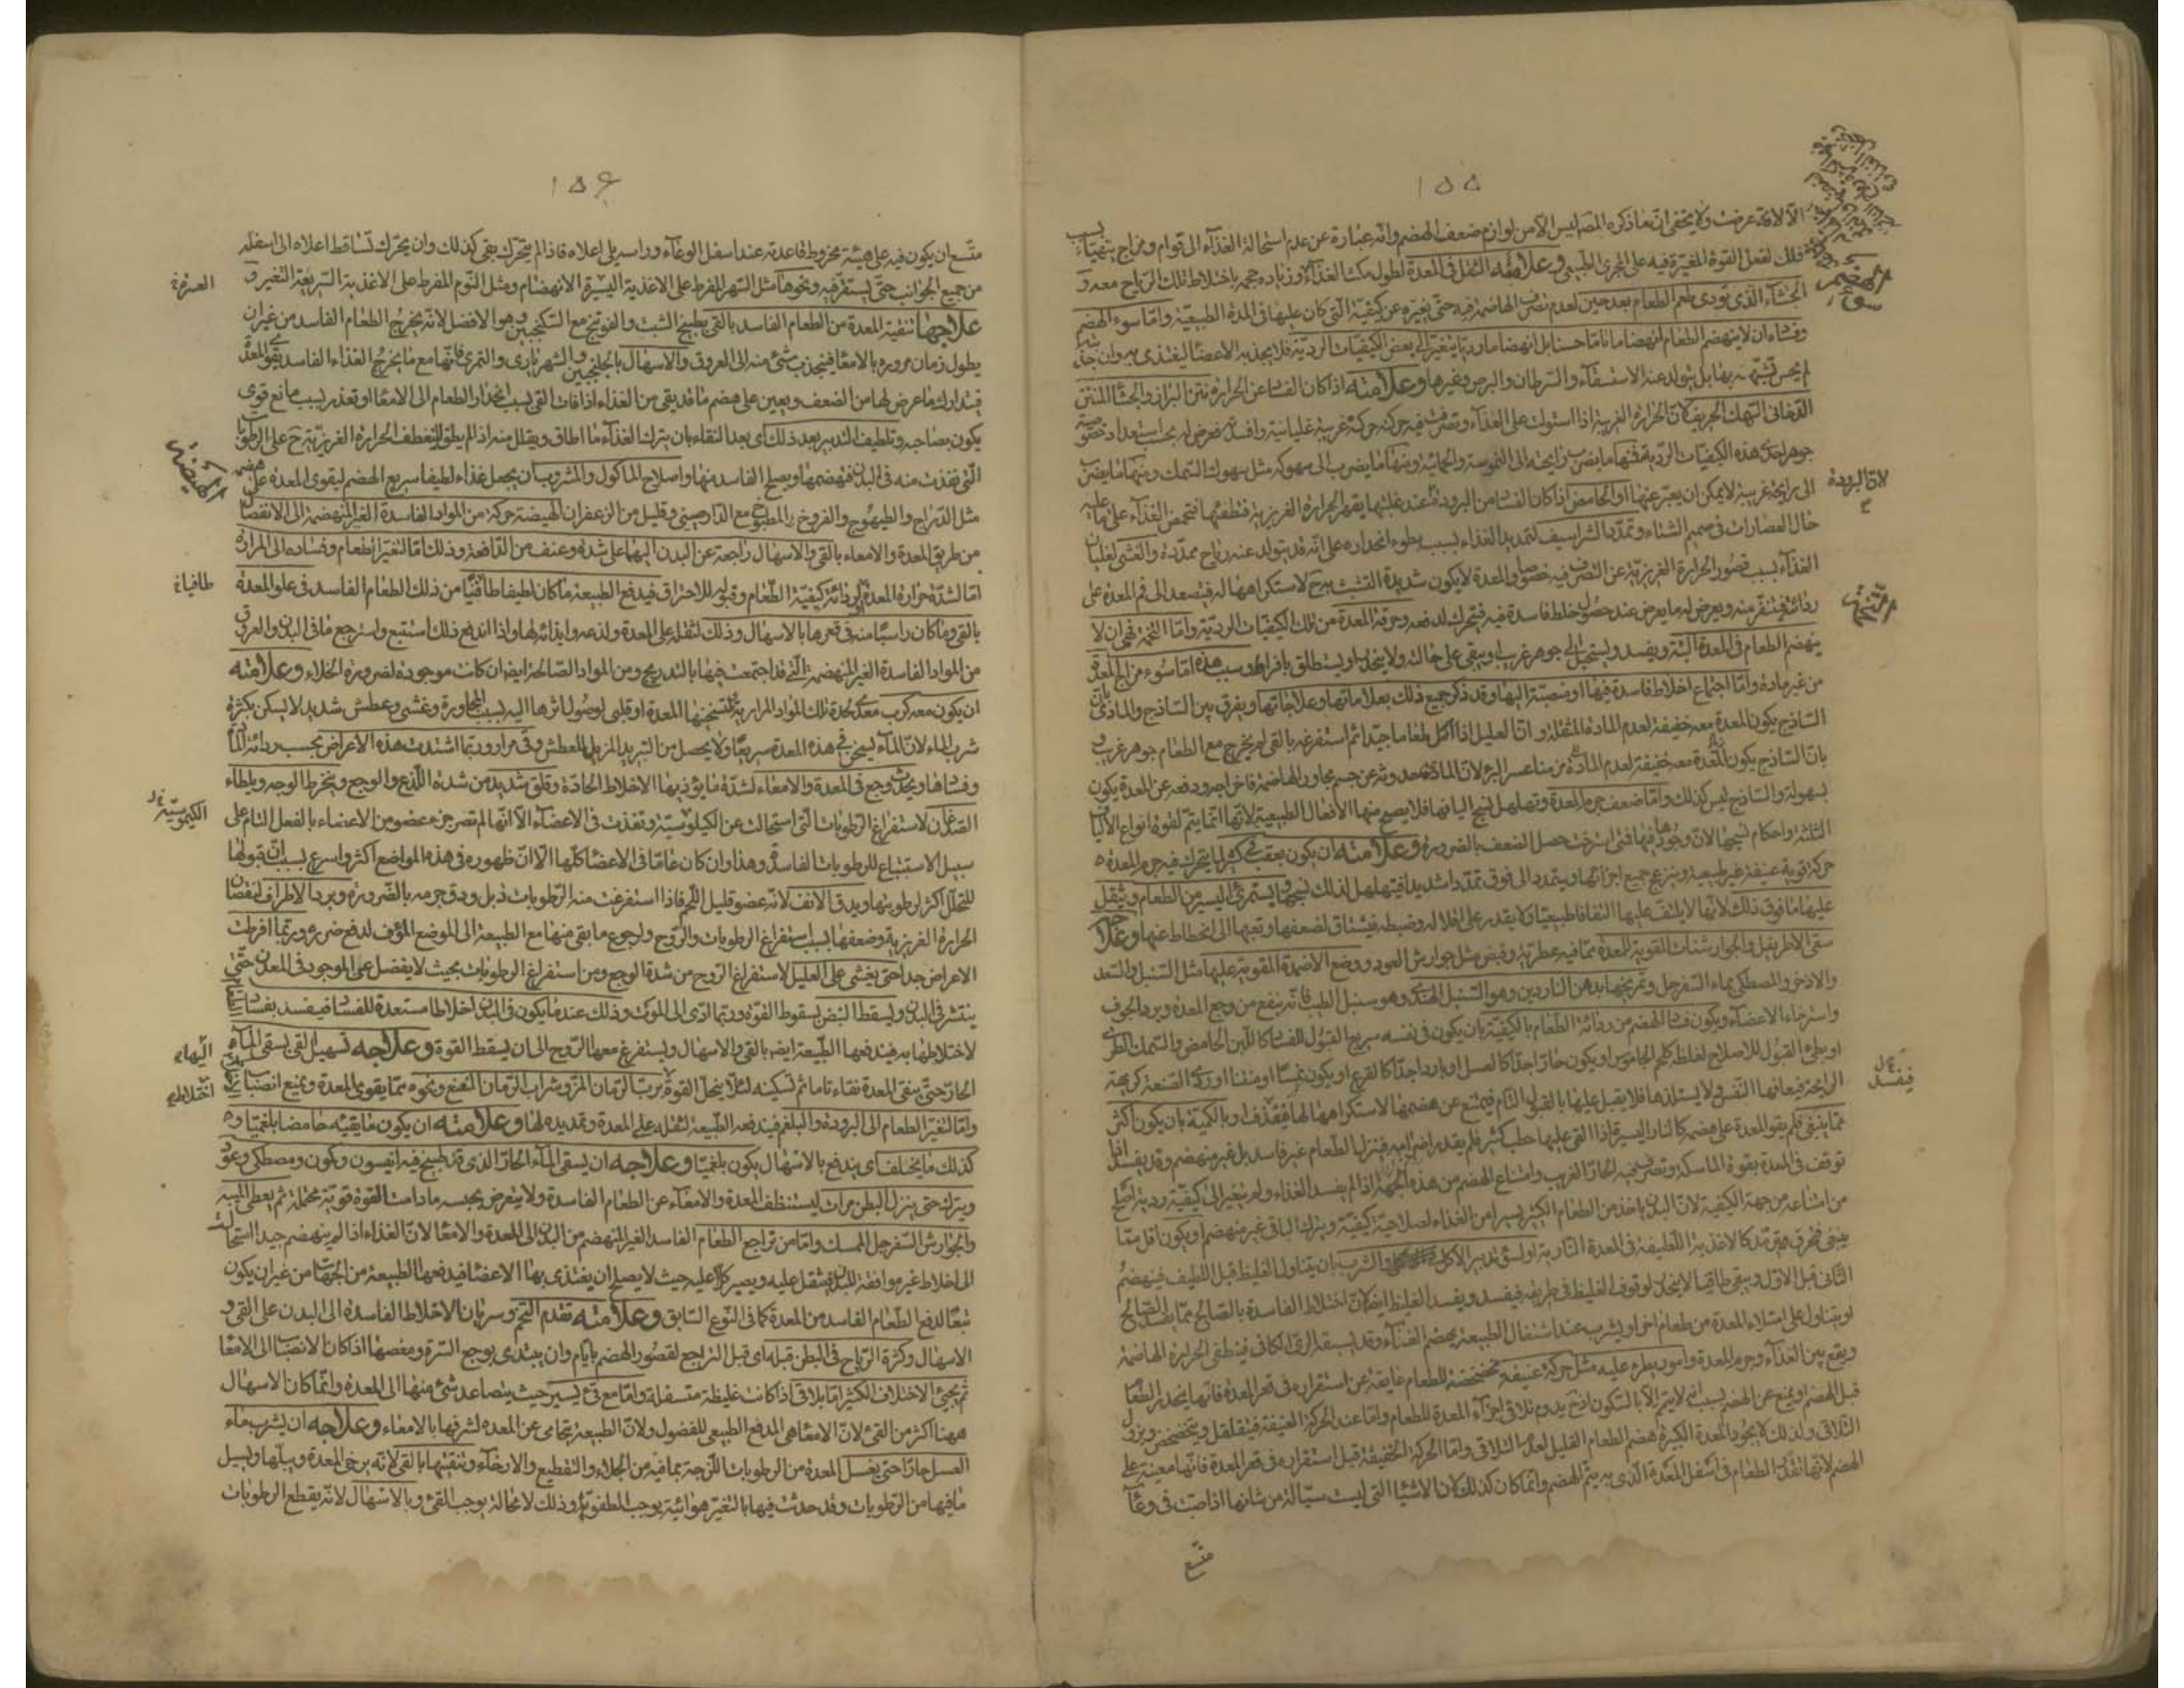 ١٥٥
الا لآفة عرضت ولا يخفى ان ما ذكره المص ليس الا من لوازم ضعف الهضم وانه عبارة عن عدم استحالة الغذاء الى قوام ومزاج يتهياء بسبب
ذلك لفعل القوة المغيرة فيه على المجرى الطبيعى وعلامته الثقل فى المعدة لطول مكث الغذاء وزيادة حجمه باختلاط تلك الرياح معه و
الجشاء الذى يودى طعم الطعام بعد حين لعدم تصرف الهاضمة فيه حتى يغيره عن كيفية التى كان عليها فى المدة الطبيعية واما سوء الهضم
وفساده ان لا ينهضم الطعام انهضاما تاما حسنا بل انهضاما رديا يتغير الى بعض الكيفيات الردية فلا يجذبه الاعضا ليغتذى به وان جذبته
لم يحسن تشبهه بها بل يتولد عنه الاستسقاء والسرطان والبرص وغيرها وعلامته اذا كان الفساد عن الحرارة نتن البراز والجشا المنتن
الدخانى السهك الحريف لان الحرارة الغريبة اذا استولت على الغذاء وتصرفت فيه حركته حركة غريبة غليانية وافسدته فعرض له بحسب استعداد خصوصية
جوهره احدى هذه الكيفيات الردية فمنها ما يضرب رايحته الى النموسة والحمائية ومنها ما يضرب الى سهوكة مثل سهوك السمك ومنها ما يضرب
الى رايحة غريبة لا يمكن ان يعبر عنها او الحامض اذا كان الفساد من البرودة عند غلبتها يقهر الحرارة الغريزية فتطفيها فتحمض الغذاء على ما عليه
حال العصارات فى صميم الشتاء وتمدد الشراسيف لتمديد الغذاء بسبب بطوء انحداره على انه قد يتولد عنه رياح ممددة والغشى لغليان
الغذاء بسبب قصور الحرارة الغريزية عن التصرف فيه خصوصا والمعدة لا يكون شديدة التشبث به لاستكراهها له فيتصعد الى فم المعدة على
ردائة فيتنفر منه ويعرض له ما يعرض عند حصول خلط فاسدة فيه فيتحرك لدفعه وحرقة المعدة من تلك الكيفيات الردية واما التخمة فهى ان لا
ينهضم الطعام فى المعدة البتة ويفسد ويستحيل الى جوهر غريب او يبقى على حالته ولا ينحدر او يستطلق بافراط وسبب هذه اما سوء مزاج المعدة
من غير مادة واما اجتماع اخلاط فاسدة فيها او منصبة اليها وقد ذكر جميع ذلك بعلاماتها وعلاجاتها ويفرق بين الساذج والمادى بان
الساذج يكون المعدة معه خفيفة لعدم المادة المثقلة وان العليل اذا اكل طعاما جيدا ثم استفرغه بالقى لم يخرج مع الطعام جوهر غريب و
بسهولة والساذج ليس كذلك واما ضعف جرم المعدة وتهلهل نسج اليافها فلا يصح منها الافعال الطبيعية لانها انما يتم لقوة انواع الالياف
الثلثة واحكام نسجها لان وجودها فيها فمتى استرخت حصل الضعف بالضرورة وعلامته ان يكون بعقب
حركة قوية عنيفة غير طبيعية وينزعج جميع اجزائها ويتمدد الى فوق تمددا شديدا فيتهلهل لذلك نسجها ويستمرئ اليسير من الطعام ويثقل
عليها ما فوق ذلك لانها لا يلتف عليها التفافا طبيعيا ولا يقدر على اقلاله وضبطه فيشتاق لضعفها وتعبها الى انحطاط عنها وعلاجه
سقى الاطريفل والجوارشنات المقوية للمعدة مما فيه عطرية وقبض مثل جوارش العود ووضع الاضمدة المقوية عليها مثل السنبل والسعد
والاذخر والمصطكى بماء السفرجل وتمريخها بدهن الناردين وهو السنبل الهندى وهو سنبل الطيب فانه ينفع من وجع المعدة وبرد الجوف
واسترخاء الاعضاء ويكون فساد الهضم من ردائة الطعام بالكيفية بان يكون فى نفسه سريع القبول للفساد كاللبن الحامض والسمك الطرى
او بطئ القبول للاصلاح لغلظه كلحم الجاموس او يكون حارا جدا كالعسل او باردا جدا كالقرع او يكون او منتنا او ردى الصنعة كريهة
الرايحة فيعافها النفس ولا يستلذها فلا يقبل عليها بالقبول التام فيمتنع عن هضمها لاستكراهها لها فيقذف او بالكمية بان يكون اكثر
مما ينبغى فلم يقو المعدة على هضمه كالنار اليسيرة اذا القى عليها حطب كثير فلم يقدر اضرامه فينزل الطعام غير فاسد بل غير منهضم وقد يفسد اذا
توقف فى المعدة بقوة الماسكة وتصرف فيه الحار الغريب وامتناع الهضم من هذه الجهة اذا لم يفسد الغذاء ولم يتغير الى كيفية ردية اصلح
من امتناعه من جهة الكيفية لان البدن ياخذ من الطعام الكثير يسيرا من الغذاء لصلاحية كيفيته ويترك الباقى غير منهضم او يكون اقل مما
ينبغى فيحرق ويترمد كالاغذية اللطيفة فى المعدة النارية او لسوء تدبير الاكل والشرب بان يتناول الغليظ قبل اللطيف فينهضم
الثانى قبل الاول ويبقى طافيا لا ينحدر لوقوف الغليظ فى طريقه فيفسد ويفسد الغليظ ايضا لان اختلاط الفاسدة بالصالح مما يفسد الصالح
او يتناول على امتلاء المعدة من طعام اخر او يشرب عند اشتغال الطبيعة بهضم الغذاء وقد يسبقه الرى الكافى فينطفى الحرارة الهاضمة
ويقع بين الغذاء وجرم المعدة وامور يطرء عليه مثل حركة عنيفة مخضخضة للطعام عايقة عن استقراره فى قعر المعدة فانها ينحدر الطعام
قبل الهضم او يمنع عن الهضم بسبب انه لا يتم الا بالسكون اذ ح يدوم تلاقى اجزاء المعدة للطعام واما عند الحركة العنيفة فيتقلقل ويتخضخض ويزول
التلاقى ولذلك لا يجود المعدة الكبيرة هضم الطعام القليل لعدم التلاقى واما الحركة الخفيفة قبل استقراره فى قعر المعدة فانها معينة على
الهضم لانها تقل الطعام فى اسفل المعدة الذى به يتم الهضم وانما كان كذلك لان الاشيا التى ليست سيالة من شانها اذا صبت فى وعاء
متسع
سوء الهضم
لان البرودة
التخمة
فيفسد
١٥۶
متسع ان يكون فيه على هيئة مخروط قاعدته عند اسفل الوعاء وراسه يلى اعلاه فاذا لم يتحرك بقى كذلك وان يحرك تساقط اعلاه الى اسفله
من جميع الجوانب حتى يستقر فيه ونحوها مثل السهر المفرط على الاغذية اليسيرة الانهضام ومثل النوم المفرط على الاغذية السريعة التغير و
علاجها تنقية المعدة من الطعام الفاسد بالقى بطبيخ الشبت والفوتنج مع السكنجبين وهو الافضل لانه يخرج الطعام الفاسد من غير ان
يطول زمان مروره بالامعا فينجذب شئ منه الى العروق والاسهال بالجلنجبين والشهرياران والتمرى فانها مع ما يخرج الغذاء الفاسد يقوى المعدة
فيتدارك ما عرض لها من الضعف ويعين على هضم ما قد يبقى من الغذاء اذا فات القى لسبب انحدار الطعام الى الامعا او تعذر بسبب مانع قوى
يكون بصاحبه وتلطيف التدبير بعد ذلك اى بعد النقاء بان يترك الغذاء ما اطاق ويقلل منه اذا لم يطق لتنعطف الحرارة الغريزية ح على الرطوبات
التى نفذت منه فى البدن فهضمها ويصلح الفاسد منها واصلاح الماكول والمشروب بان يجعل غذاء لطيفا سريع الهضم ليقوى المعدة على هضمه
مثل الدراج والطيهوج والفروخ المطبوخ مع الدارصينى وقليل من الزعفران الهيضة حركة من المواد الفاسدة الغير المنهضمة الى الانفصال
من طريق المعدة والامعاء بالقى والاسهال راجعة عن البدن اليها على شدة وعنف من الدافعة وذلك اما لتغير الطعام وفساده الى المرارة
اما لشدة حرارة المعدة او لردائة كيفية الطعام وقبوله للاحتراق فيدفع الطبيعة ما كان لطيفا طافيا من ذلك الطعام الفاسد فى علو المعدة
بالقى وما كان راسبا منه فى قعرها بالاسهال وذلك لثقله على المعدة ولذعه وايذائه لها واذا اندفع ذلك استتبع واسترجع ما فى البدن والعروق
من المواد الفاسدة الغير المنهضمة التى قد اجتمعت فيها بالتدريج ومن المواد الصالحة ايضا ان كانت موجودة لضرورة الخلاء وعلامته
ان يكون معه كرب معدى لحدة تلك المواد المرارية لتسخينها المعدة او قلبى لوصول اثرها اليه لسبب المجاورة وغشى وعطش شديد لا يسكن بكثرة
شرب الماء لان الماء يسخن فى هذه المعدة سريعا ولا يحصل من التبريد المزيل للعطش وقى مرار وربما اشتدت هذه الاعراض بحسب ردائة المادة
وفسادها ويحدث وجع فى المعدة والامعاء لشدة ما يؤذيها الاخلاط الحادة وقلق شديد من شدة اللذع والوجع وينخرط الوجه ويلطاء
الصدغان لاستفراغ الرطوبات التى استحالت عن الكيلوسية ونفذت فى الاعضاء الا انها لم تصر جزء عضو من الاعضاء بالفعل التام على
سبيل الاستتباع للرطوبات الفاسدة وهذا وان كان عاما فى الاعضا كلها الا ان ظهوره فى هذه المواضع اكثر واسرع لسبب ان قبولها
للتحلل اكثر لرطوبتها ويدق الانف لانه عضو قليل اللحم فاذا استفرغت منه الرطوبات ذبل ودق جرمه بالضرورة ويبرد الاطراف لنقصان
الحرارة الغريزية وضعفها بسبب استفراغ الرطوبات والروح ولرجوع ما بقى منها مع الطبيعة الى الموضع المؤف لدفع ضرره وربما افرطت
الاعراض جدا حتى يغشى على العليل لاستفراغ الروح من شدة الوجع ومن استفراغ الرطوبات بحيث لا يفضل عن الموجود فى المعدن حتى
ينتشر فى البدن ويسقط النبض لسقوط القوة وربما ادى الى الموت وذلك عند ما يكون فى البدن اخلاط مستعدة للفساد فيفسد بفساد الطعام
لاختلاطها به فيندفعها الطبيعة ايضا بالقى والاسهال ويستفرغ معها الروح الى ان يسقط القوة وعلاجه تسهيل القى بسقى الماء
الحار حتى ينقى المعدة نقاء تاما ثم تسكينه لئلا ينحل القوة برب الرمان المز وشراب الرمان المنعنع ونحوه مما يقوى المعدة ويمنع انصباب
واما لتغير الطعام الى البرودة والبلغم فيندفعه الطبيعة لثقله على المعدة وتمديده لها وعلامته ان يكون ما يقيئه حامضا بلغميا و
كذلك ما يختلف اى يندفع بالاسهال يكون بلغميا وعلاجه ان يسقى الماء الحار الذى قد طبخ فيه انيسون وكمون ومصطكى وعود
ويترك حتى ينزل البطن مرات ليستنظف المعدة والامعاء عن الطعام الفاسدة ولا يتعرض بحبسه ما دامت القوة قوية محتملة ثم يعطى الميبه
والجوارش السفرجل الممسك واما من تراجع الطعام الفاسد الغير المنهضم من البدن الى المعدة والامعا لان الغذاء اذا لم ينهضم جيدا استحال
الى اخلاط غير موافقة للبدن فيثقل عليه ويصير كلا عليه حيث لا يصلح ان يغتذى بها الاعضا فيدفعها الطبيعة من الجهات من غير ان يكون
تبعا لدفع الطعام الفاسد من المعدة كما فى النوع السابق وعلامته تقدم التخم وسريان الاخلاط الفاسدة الى البدن على القى و
الاسهال وكثرة الرياح فى البطن قبله اى قبل التراجع لقصور الهضم بايام وان يبتدى بوجع السرة ومغصها اذا كان الانصباب الى الامعا
ثم يجيئ الاختلاف الكثير اما بلا قى اذا كانت غليظة متسفلة واما مع قئ يسير حيث يتصاعد شئ منها الى المعدة وانما كان الاسهال
ههنا اكثر من القئ لان الامعاء هى المدفع الطبيعى للفضول ولان الطبيعة تحامى عن المعدة لشرفها بالامعاء وعلاجه ان يشرب ماء
العسل حارا حتى يغسل المعدة من الرطوبات اللزجة بما فيه من الجلاء والتقطيع والارخاء وتنقيتها بالقى لانه يرخى المعدة ويبلها ويسيل
ما فيها من الرطوبات وقد حدثت فيها بالتغير هوائية يوجب الطفو وذلك لا محالة يوجب القئ وبالاسهال لانه يقطع الرطوبات
العسرة
الهيضة
طافيا
الكيموسية
اليها
اختلاط